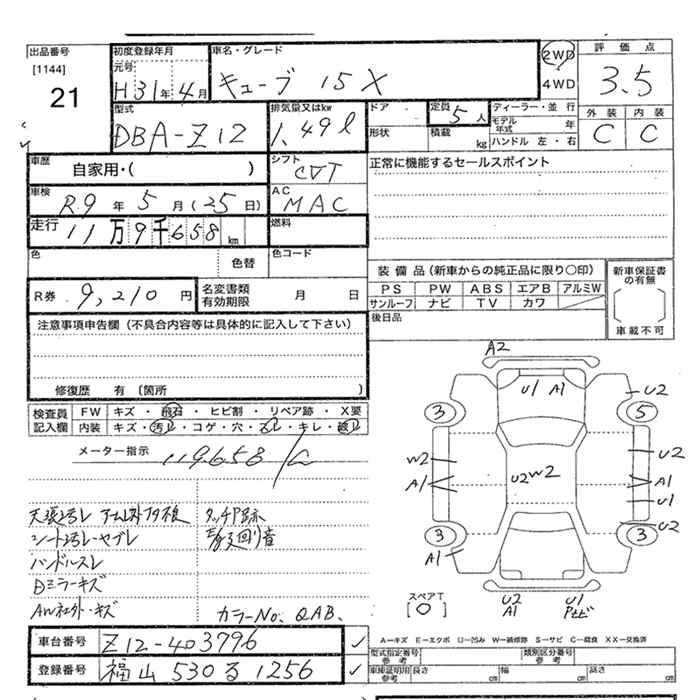 出品番号
[1144]
21
初度登録年月
元号
H31年4月
車名・グレード
キューブ 15X
2WD
4WD
評価点
3.5
外装 内装
C C
型式
DBA-Z12
排気量又はkw
1.49ℓ
ドア
形状
定員
5人
積載
kg
ディーラー・並行
モデル年式 年
ハンドル 左・右
車歴
自家用・( )
シフト
CVT
正常に機能するセールスポイント
車検
R9年5月(25日)
AC
MAC
走行
11万9千658km
燃料
色
色替
色コード
R券 9,210円
名変書類
有効期限
月 日
装備品(新車からの純正品に限り○印)
PS PW ABS エアB アルミW
サンルーフ ナビ TV カワ
後日品
新車保証書
の有無
車載不可
注意事項申告欄(不具合内容等は具体的に記入して下さい)
修復歴 有〔箇所 〕
検査員
記入欄
FW キズ・飛石・ヒビ割・リペア跡・X要
内装 キズ・汚レ・コゲ・穴・スレ・キレ・破レ
メーター指示
119.658
A2
U1 A1
U2
3
5
W2
A1
U2 W2
U2
A1
U1
U2
3
3
A1
スペアT
[○]
U2
A1
U1
シート汚レ・ヤブレ
ハンドルスレ
Dミラーキズ
AW社外・キズ
タッチP跡
カラーNo. QAB.
A−キズ E−エクボ U−凹み W−補修跡 S−サビ C−腐食 XX−交換済
車台番号 Z12-403796
登録番号 福山 530 る 1256
型式指定番号
参考
類別区分番号
参考
車庫証明用
参考
長さ cm
幅 cm
高さ cm